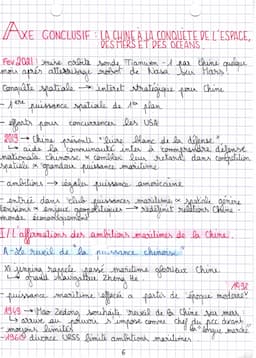 AXE CONCLUSIF : LA CHINE À LA CONQUÊTE DE L'ESPACE,
DES MERS ET DES OCÉANS.
Fev 2021 : mise orbite sonde Tianwen-1 par Chine quelque
mois après atterissage robot de Nasa sur Mars.
Conquête spatiale → intérêt stratégique pour Chine
- 1ère puissance spatiale de 1er plan
- efforts pour concurrencer les USA
2019 → Chine présente "livre blanc de la défense"
↳ aide la communauté inter à comprendre défense
nationale chinoise x combler leur retard dans compétition
spatiale x grandeur puissance maritime.
- ambitions → égaler puissance américaine
- entrée dans club puissances maritimes x spatiale génère
tensions x enjeux géopolitiques → redéfinit relations Chine
monde économiquement
I/ L'affirmations des ambitions maritimes de la Chine.
A-Le réveil de la "puissance chinoise"
Xi Jinping rappelle passé maritime glorieux Chine
↳ grand navigateur Zheng He
- puissance maritime effacée à partir de époque moderne 1492
- 1949 → Mao Zedong souhaite réveil de la Chine sur mer
↳ arrive au pouvoir x impose comme chef du pcc durant
- moyens limités la "longue marche"
- 1960 divorce URSS limite ambitions maritimes
6